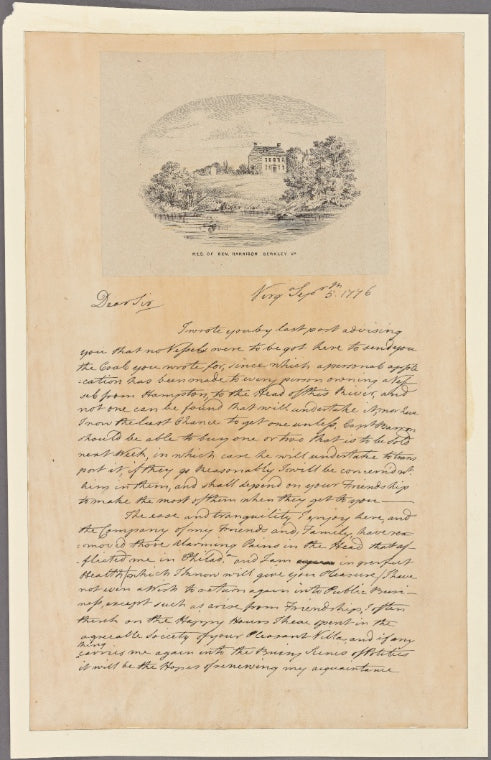 RES. OF BEN. HARRISON BERKLEY VA.
Dear Sir
Virgᵃ Sepʳ 5th 1776
I wrote you by last post advising
you that no Vessels were to be got here to send you
the Coal you wrote for, since which a personal appli
-cation has been made to every person owning a Ves
sel from Hampton, to the Head of this River, and
not one can be found that will undertake it, nor have
I now the least Chance to get one unless, Capt
should be able to buy one or two that is to be sold
next Week, in which case he will undertake to trans
port it, if they go Reasonably I will be concernd wt.
him in them, and shall depend on your Friendship
to make the most of them when they get to you
The ease and tranquility I enjoy here, and
the Company of my Friends and, Family, have re
-moved those Alarming Pains in the Head that af
flicted me in Philadᵃ and I am in perfect
Health, which I know will give you Pleasure, I have
not even a Wish to return again into Public Busi-
ness, except such as arise from Friendship, I often
think on the Happy Hours I have spent in the
agreeable Society of your Pleasant Villa, and if any
thing
carries me again into the Busy Scenes of Politics
it will be the Hopes of renewing my acquaintance